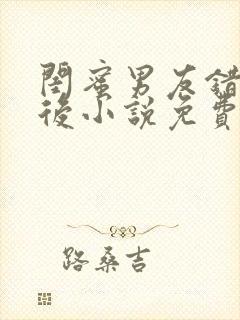 閨蜜男友錯
後小說免費
路桑吉